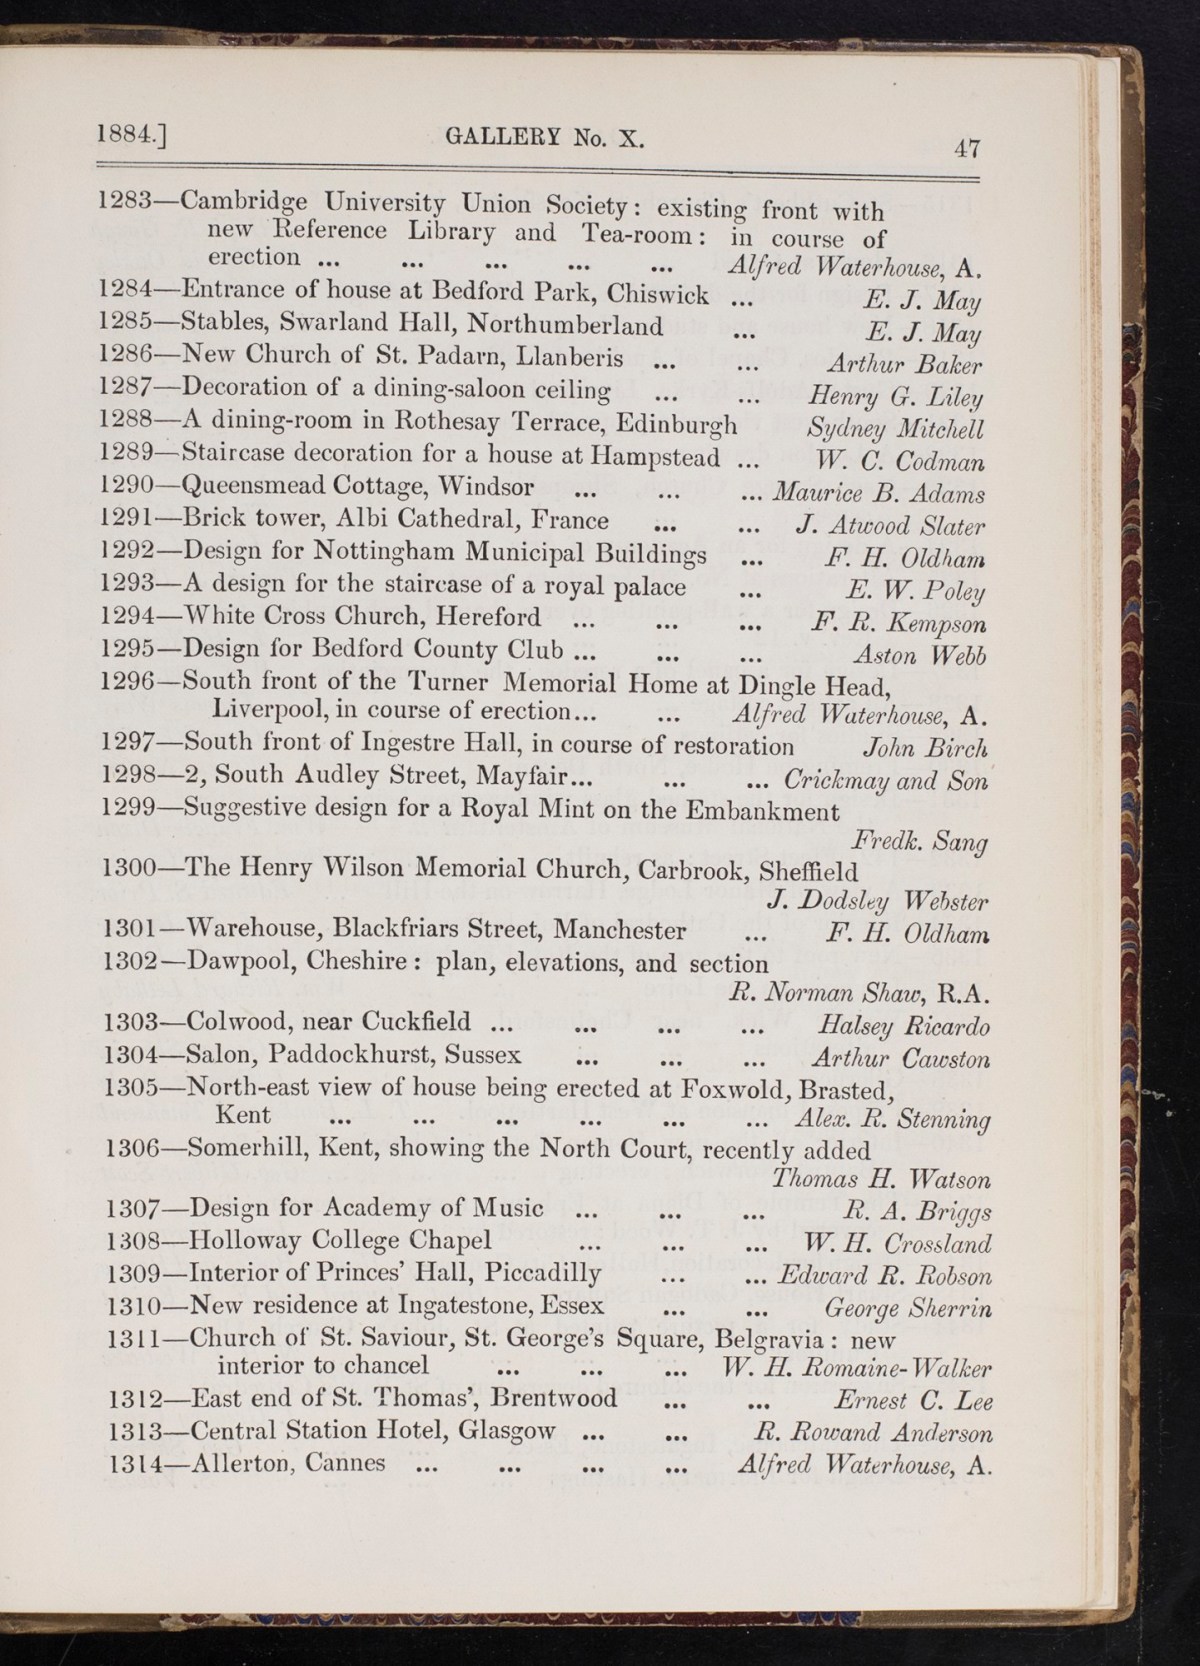 1884.] GALLERY No. X. 47
1283—Cambridge University Union Society: existing front with
new Reference Library and Tea-room: in course of
erection ... ... ... ... ... Alfred Waterhouse, A.
1284—Entrance of house at Bedford Park, Chiswick ... E. J. May
1285—Stables, Swarland Hall, Northumberland ... E. J. May
1286—New Church of St. Padarn, Llanberis ... ... Arthur Baker
1287—Decoration of a dining-saloon ceiling ... ... Henry G. Liley
1288—A dining-room in Rothesay Terrace, Edinburgh Sydney Mitchell
1289—Staircase decoration for a house at Hampstead ... W. C. Codman
1290—Queensmead Cottage, Windsor ... ... ... Maurice B. Adams
1291—Brick tower, Albi Cathedral, France ... ... J. Atwood Slater
1292—Design for Nottingham Municipal Buildings ... F. H. Oldham
1293—A design for the staircase of a royal palace ... E. W. Poley
1294—White Cross Church, Hereford ... ... ... F. R. Kempson
1295—Design for Bedford County Club ... ... ... Aston Webb
1296—South front of the Turner Memorial Home at Dingle Head,
Liverpool, in course of erection... ... Alfred Waterhouse, A.
1297—South front of Ingestre Hall, in course of restoration John Birch
1298—2, South Audley Street, Mayfair... ... ... Crickmay and Son
1299—Suggestive design for a Royal Mint on the Embankment
Fredk. Sang
1300—The Henry Wilson Memorial Church, Carbrook, Sheffield
J. Dodsley Webster
1301—Warehouse, Blackfriars Street, Manchester ... F. H. Oldham
1302—Dawpool, Cheshire: plan, elevations, and section
R. Norman Shaw, R.A.
1303—Colwood, near Cuckfield ... ... ... ... Halsey Ricardo
1304—Salon, Paddockhurst, Sussex ... ... ... Arthur Cawston
1305—North-east view of house being erected at Foxwold, Brasted,
Kent ... ... ... ... ... ... Alex. R. Stenning
1306—Somerhill, Kent, showing the North Court, recently added
Thomas H. Watson
1307—Design for Academy of Music ... ... ... R. A. Briggs
1308—Holloway College Chapel ... ... ... W. H. Crossland
1309—Interior of Princes' Hall, Piccadilly ... ... Edward R. Robson
1310—New residence at Ingatestone, Essex ... ... George Sherrin
1311—Church of St. Saviour, St. George's Square, Belgravia: new
interior to chancel ... ... ... W. H. Romaine-Walker
1312—East end of St. Thomas', Brentwood ... ... Ernest C. Lee
1313—Central Station Hotel, Glasgow ... ... R. Rowand Anderson
1314—Allerton, Cannes ... ... ... ... Alfred Waterhouse, A.